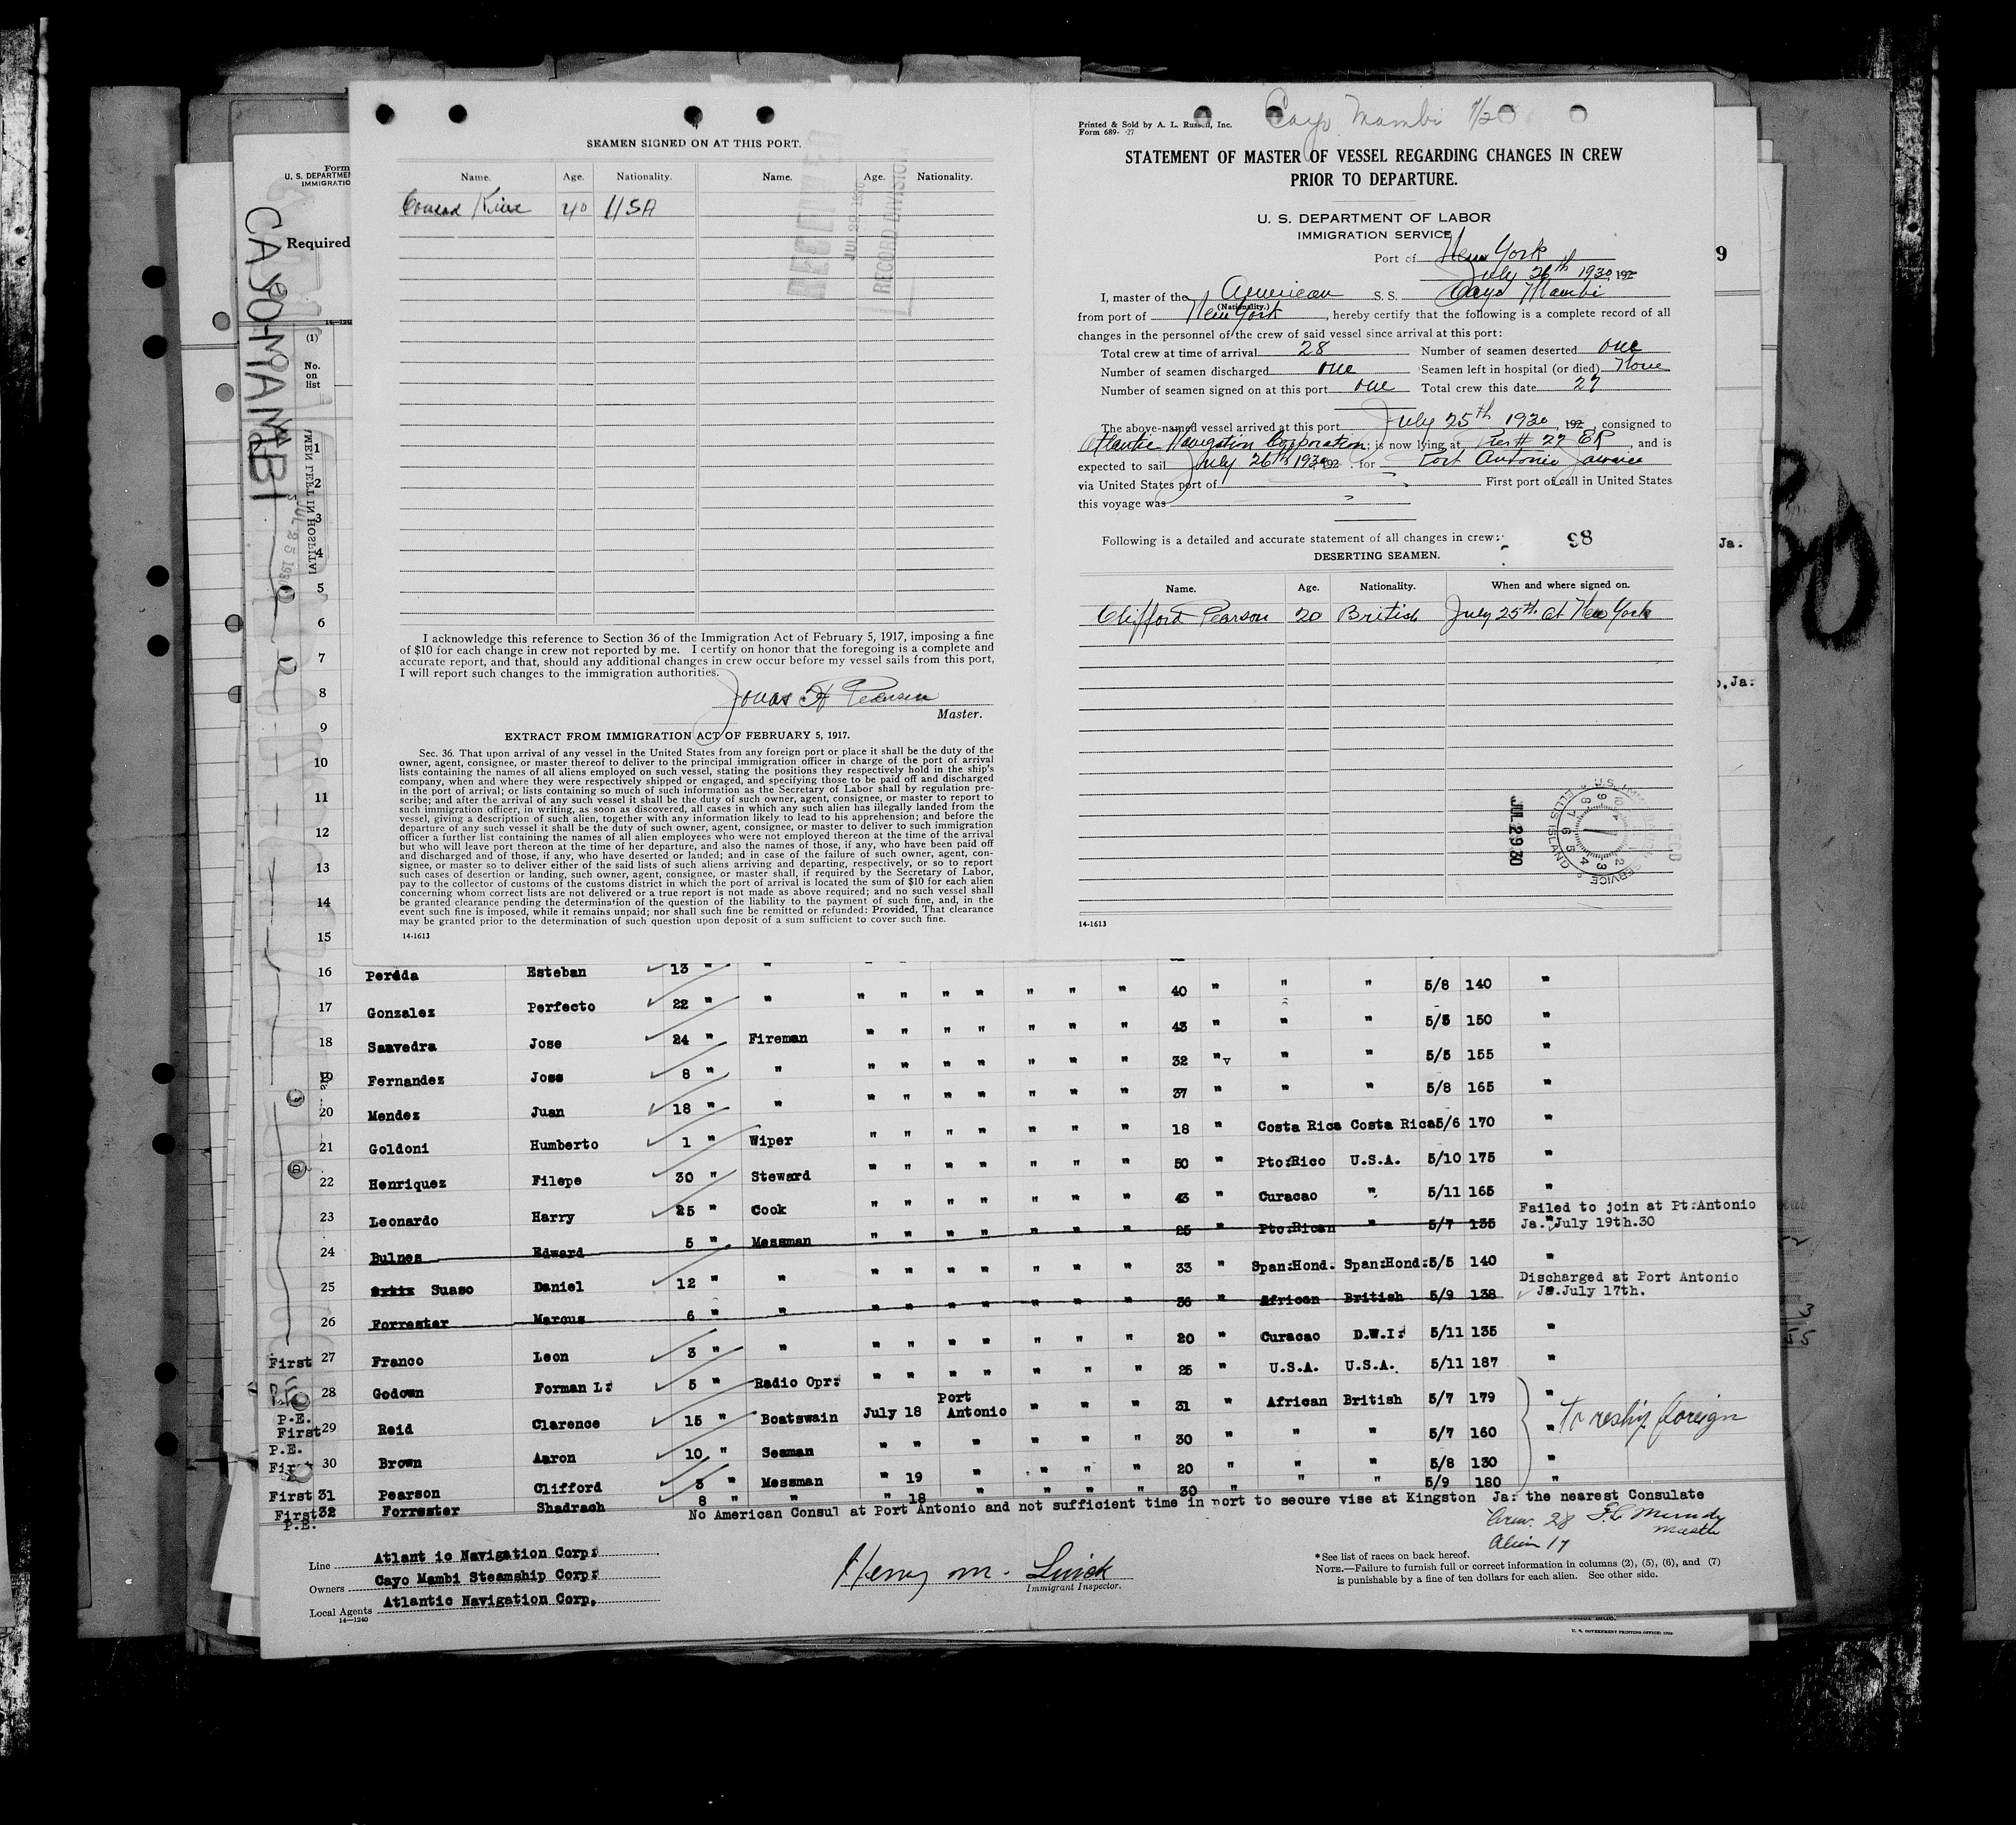 SEAMEN SIGNED ON AT THIS PORT.
Name. Age. Nationality. Name. Age. Nationality.
Conrad 40 USA
RECEIVED
RECORD DIVISION
I acknowledge this reference to Section 36 of the Immigration Act of February 5, 1917, imposing a fine
of $10 for each change in crew not reported by me. I certify on honor that the foregoing is a complete and
accurate report, and that, should any additional changes in crew occur before my vessel sails from this port,
I will report such changes to the immigration authorities.
Master.
EXTRACT FROM IMMIGRATION ACT OF FEBRUARY 5, 1917.
Sec. 36. That upon arrival of any vessel in the United States from any foreign port or place it shall be the duty of the
owner, agent, consignee, or master thereof to deliver to the principal immigration officer in charge of the port of arrival
lists containing the names of all aliens employed on such vessel, stating the positions they respectively hold in the ship's
company, when and where they were respectively shipped or engaged, and specifying those to be paid off and discharged
in the port of arrival; or lists containing so much of such information as the Secretary of Labor shall by regulation pre-
scribe; and after the arrival of any such vessel it shall be the duty of such owner, agent, consignee, or master to report to
such immigration officer, in writing, as soon as discovered, all cases in which any such alien has illegally landed from the
vessel, giving a description of such alien, together with any information likely to lead to his apprehension; and before the
departure of any such vessel it shall be the duty of such owner, agent, consignee, or master to deliver to such immigration
officer a further list containing the names of all alien employees who were not employed thereon at the time of the arrival
but who will leave port thereon at the time of her departure, and also the names of those, if any, who have been paid off
and discharged and of those, if any, who have deserted or landed; and in case of the failure of such owner, agent, con-
signee, or master so to deliver either of the said lists of such aliens arriving and departing, respectively, or so to report
such cases of desertion or landing, such owner, agent, consignee, or master shall, if required by the Secretary of Labor,
pay to the collector of customs of the customs district in which the port of arrival is located the sum of $10 for each alien
concerning whom correct lists are not delivered or a true report is not made as above required; and no such vessel shall
be granted clearance pending the determination of the question of the liability to the payment of such fine, and, in the
event such fine is imposed, while it remains unpaid; nor shall such fine be remitted or refunded: Provided, That clearance
may be granted prior to the determination of such question upon deposit of a sum sufficient to cover such fine.
14-1613
Cayo Mambi
Printed & Sold by A. L. Russell, Inc.
Form 689- -27
STATEMENT OF MASTER OF VESSEL REGARDING CHANGES IN CREW
PRIOR TO DEPARTURE.
U. S. DEPARTMENT OF LABOR
IMMIGRATION SERVICE
Port of New York
July 26th 1930, 192
I, master of the American S. S. Cayo Mambi
(Nationality.)
from port of New York, hereby certify that the following is a complete record of all
changes in the personnel of the crew of said vessel since arrival at this port:
Total crew at time of arrival 28 Number of seamen deserted one
Number of seamen discharged one Seamen left in hospital (or died) None
Number of seamen signed on at this port one Total crew this date 27
The above-named vessel arrived at this port July 25th 1930, 192 , consigned to
Atlantic Navigation Corporation; is now lying at Pier # 27 ER, and is
expected to sail July 26th 1930 192 . for Port Antonio Jamaica
via United States port of First port of call in United States
this voyage was
Following is a detailed and accurate statement of all changes in crew:
98
DESERTING SEAMEN.
Name. Age. Nationality. When and where signed on.
Clifford Pearson 20 British July 25th at New York
JUL 29 30
U.S. IMMIGRATION SERVICE ELLIS ISLAND
14-1613
Form
U. S. DEPARTME
IMMIGRATIO
Required
CAYO-MAMBI
JUL 25 1930
(1)
No.
on
list
9
Ja.
,Ja.
1
2
3
4
5
6
7
8
9
10
11
12
13
14
15
16 Perdda Esteban 13 " "
17 Gonzalez Perfecto 22 " " " " " " " " " 40 " " " 5/8 140 "
18 Saavedra Jose 24 " Fireman " " " " " " " 43 " " " 5/5 150 "
19 Fernandez Jose 8 " " " " " " " " " 32 " " " 5/5 155 "
20 Mendez Juan 18 " " " " " " " " " 37 " " " 5/8 165 "
21 Goldoni Humberto 1 " Wiper " " " " " " " 18 " Costa Rica Costa Rica 5/6 170 "
22 Henriquez Filepe 30 " Steward " " " " " " " 50 " Pto:Rico U.S.A. 5/10 175 "
23 Leonardo Harry 25 " Cook " " " " " " " 43 " Curacao " 5/11 165 "
24 Bulnes Edward 5 " Messman " " " " " " " 25 " Pto:Rican " 5/7 135 Failed to join at Pt:Antonio
Ja. July 19th.30
25 Suaso Daniel 12 " " " " " " " " " 33 " Span:Hond. Span:Hond: 5/5 140 "
26 Forrester Marcus 6 " " " " " " " " " 36 " African British 5/9 138 Discharged at Port Antonio
Ja.July 17th.
First 27 Franco Leon 3 " " " " " " " " " 20 " Curacao D.W.I: 5/11 135 "
28 Godown Forman L: 5 " Radio Opr: " " " " " " " 25 " U.S.A. U.S.A. 5/11 187 "
P.E.
First 29 Reid Clarence 15 " Boatswain July 18 Port Antonio " " " 31 " African British 5/7 179 "
to reship foreign
P.E.
First 30 Brown Aaron 10 " Seaman " " " " " " 30 " " " 5/7 160 "
First 31 Pearson Clifford 3 " Messman " 19 " " " " 20 " " " 5/8 130 "
First 32 Forrester Shadrach 8 " " " 18 " " " " 30 " " " 5/9 180 "
P.E.
No American Consul at Port Antonio and not sufficient time in port to secure vise at Kingston Ja: the nearest Consulate
Crew. 28
Master
Alien 17
Line Atlant ic Navigation Corp:
Owners Cayo Mambi Steamship Corp:
Local Agents Atlantic Navigation Corp.
14—1240
Henry M.
Immigrant Inspector.
* See list of races on back hereof.
NOTE.—Failure to furnish full or correct information in columns (2), (5), (6), and (7)
is punishable by a fine of ten dollars for each alien. See other side.